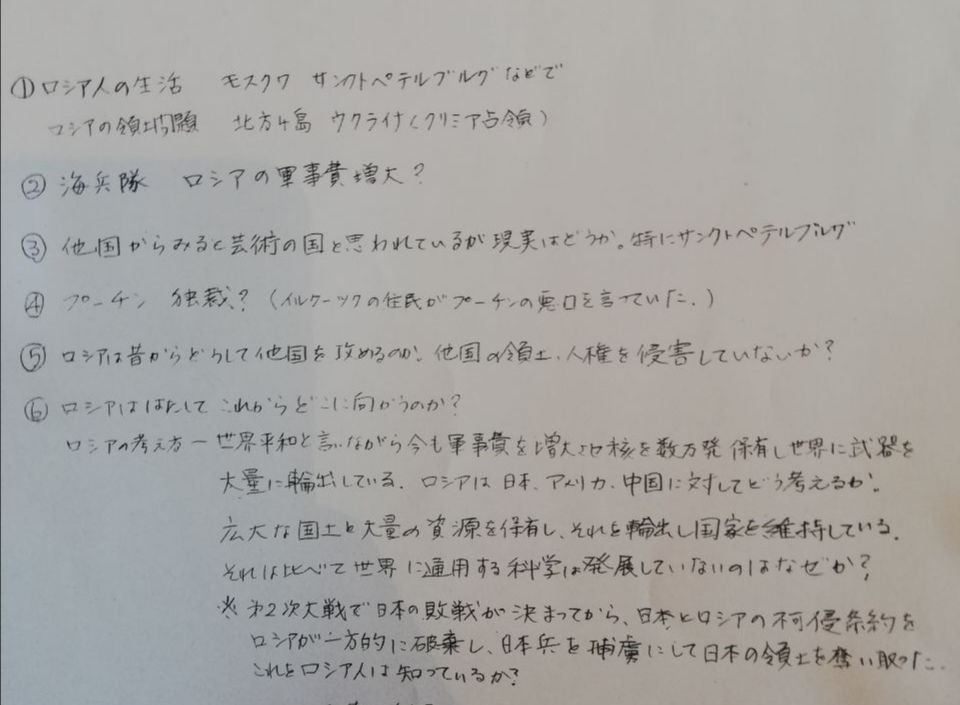 ①ロシア人の生活 モスクワ サンクトペテルブルグなどで
ロシアの領土問題 北方4島 ウクライナ(クリミア占領)
②海兵隊 ロシアの軍事費増大?
③他国からみると芸術の国と思われているが現実はどうか。特にサンクトペテルブルグ
④プーチン 独裁?(イルクーツクの住民がプーチンの悪口を言っていた.)
⑤ロシアは昔からどうして他国を攻めるのか。他国の領土、人権を侵害していないか?
⑥ロシアははたしてこれからどこに向かうのか?
ロシアの考え方ー世界平和と言いながら今も軍事費を増大させ核を数万発保有し世界に武器を
大量に輸出している。ロシアは日本、アメリカ、中国に対してどう考えるか。
広大な国土と大量の資源を保有し、それを輸出し国家を維持している。
それに比べて世界に通用する科学は発展していないのはなぜか?
※第2次大戦で日本の敗戦が決まってから、日本とロシアの不可侵条約を
ロシアが一方的に破棄し、日本兵を捕虜にして日本の領土を奪い取った。
これをロシア人は知っているか?